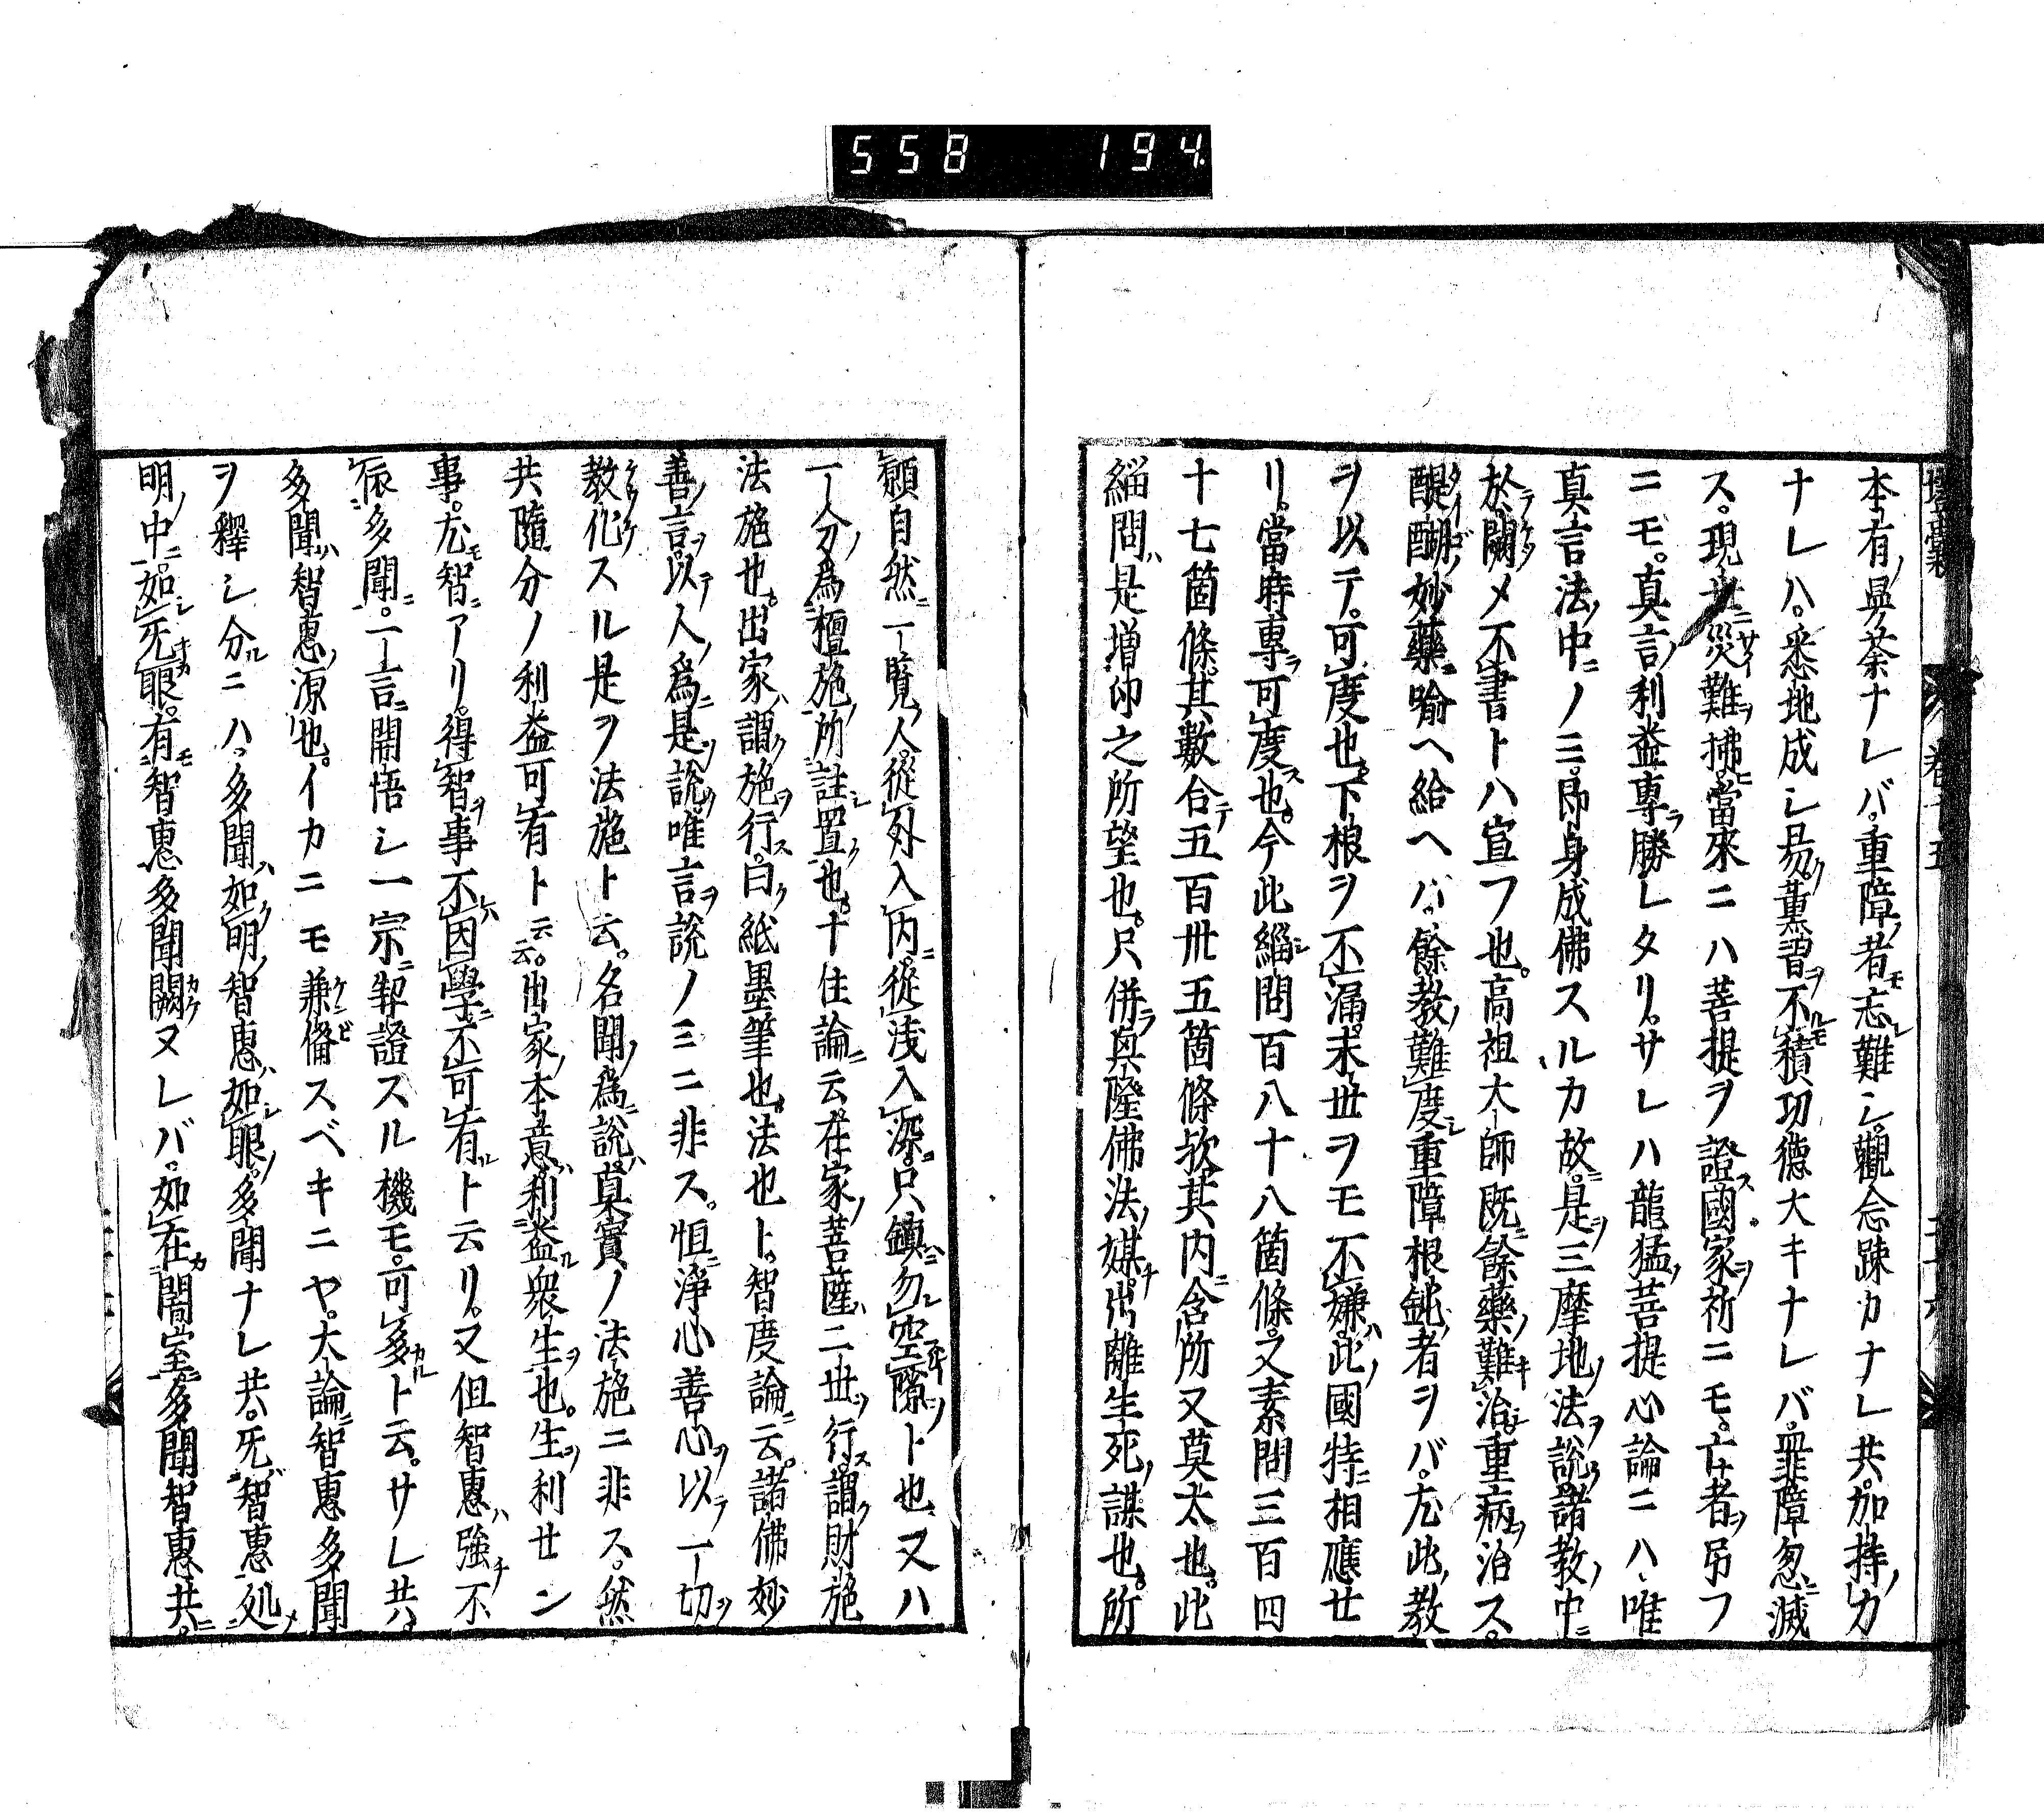 558 194
本有ノ曼荼ナレバ重障ノ者モ志シ難シ觀念踈カナレ共。加持ノ力
ナレハ。悉地成シ易ク薫習ヲ不ルモ積功德大キナレバ。罪障忽ニ滅
ス。現世ニ災難ヲ拂ヒ當來ニハ菩提ヲ證ス國家ヲ祈ニモ。亡者ヲ吊フ
ニモ。真言ノ利益專ラ勝レタリ。サレハ龍猛ノ菩提心論ニハ唯
真言法ノ中ニノミ即身成佛スルカ故ニ是ヲ三摩地ノ法ヲ說ク諸教ノ中ニ
於テ闕メ不書トハ宣フ也。高祖大師既ニ餘藥ノ難キ治シ重病ヲ治ス。
醍醐ノ妙藥ニ喻へ給ヘバ。餘教ノ難度シ重障根鈍ノ者ヲバ。尤此ノ教
ヲ以テ。可度也。下根ヲ不漏。末世ヲモ不嫌。此ノ國特ニ相應せ
リ。當時專ラ可度ス也。今此緇問百八十八箇條。又素問三百四
十七箇條。其數合テ五百卅五箇條欤。其内ニ含所又莫太也。此
緇問ハ是增卬之所望也。只併ラ興隆佛法ノ媒チ。出離生死ノ謀也。所
願自然ニ一覧ノ人。從外入内ニ。從浅入深ニ。只鎮ヘニ勿レ空隙ヲト也。又ハ
一分ノ爲檀施ノ所註置ク也。十住論ニ云。在家ノ菩薩ハ二世ヲ行ス。謂ク財施
法施也。出家ハ謂ク施ヲ行ス。曰ク紙墨筆也。法也ト。智度論ニ云。諸佛妙
善ノ言ヲ以テ人ノ爲ニ是ヲ說ク唯言ヲ說ノミニ非ス。恒ニ淨心善心ヲ以テ一切ヲ
教化スル是ヲ法施ト云。名聞ノ爲ニ說ハ真實ノ法施ニ非ス。然
共隨分ノ利益可有ト云云。出家ノ本意ハ利益ル衆生ヲ也。生ヲ利せン
事。尤モ智ニアリ。得智ヲ事不因學ニ不可有ルト云リ。又但智惠ハ強チ不
依多聞ニ。一言ニ開悟シ一宗ニ契證スル機モ。可多カルト云。サレ共。
多聞ハ智惠ノ源也。イカニモ兼備スベキニヤ。大論ニ智惠多聞
ヲ釋シ分ルニハ。多聞ハ如ク明ノ智惠ハ如シ眼ノ。多聞ナレ共。旡智惠処ニ
明ノ中ニ如シ旡眼。有モ智惠多聞闕ヌレバ。如在カ闇室ニ。多聞智惠共ニ。